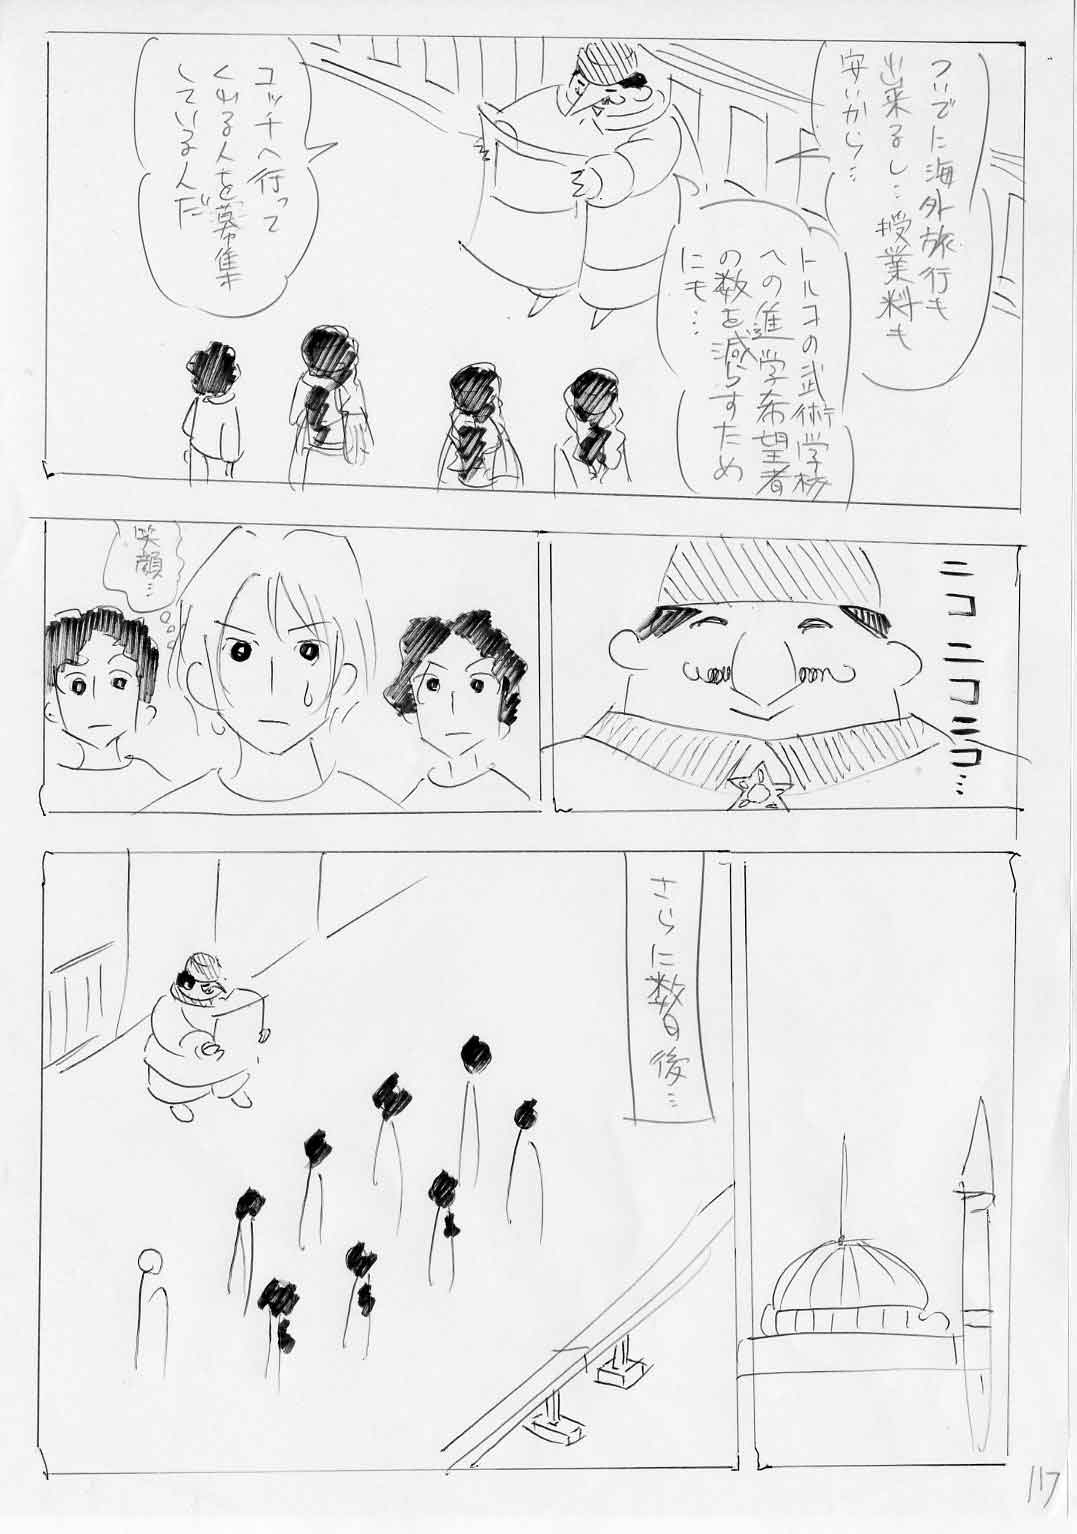 ついでに海外旅行も
出来るし…授業料も
安いから…
トルコの武術学校
への進学希望者
の数を減らすため
にも…
コッチへ行って
くれる人を募集
している人だ
ニコ ニコ ニコ…
笑顔…
さらに数日後…
117